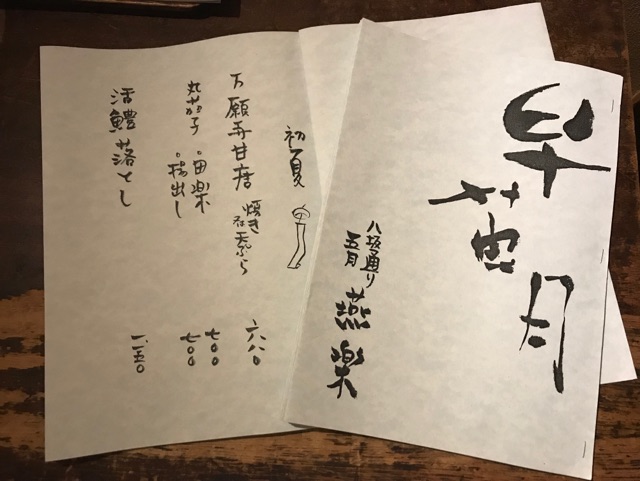 早苗月
八坂通り
五月 燕楽
初夏
万願寺甘唐 焼き 天ぷら 六八〇
丸茄子 ・田楽 七〇〇
・揚出し 七〇〇
活鱧落とし